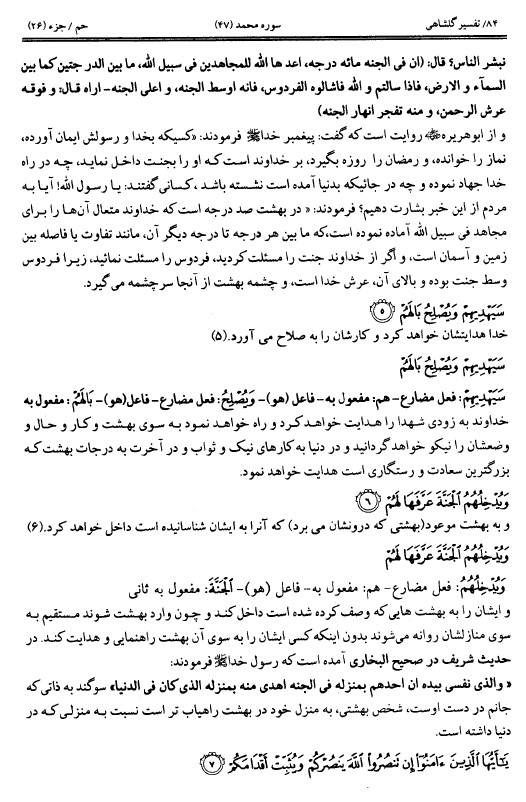 ۸۴/ تفسیر گلشاهی سوره محمد (۴۷) حم / جزء (۲۶)
نبشر الناس؟ قال: (ان فی الجنه مائه درجه، اعد ها الله للمجاهدین فی سبیل الله، ما بین الدر جتین کما بین
السمآء و الارض، فاذا سالتم و الله فاشالوه الفردوس، فانه اوسط الجنه، و اعلی الجنه- اراه قال: و فوقه
عرش الرحمن، و منه تفجر انهار الجنه)
و از ابوهریره روایت است که گفت: پیغمبر خداﷺ فرمودند: «کسیکه بخدا و رسولش ایمان آورده،
نماز را خوانده، و رمضان را روزه بگیرد، بر خداوند است که او را بجنت داخل نماید، چه در راه
خدا جهاد نموده و چه در جائیکه بدنیا آمده است نشسته باشد، کسانی گفتند: یا رسول الله! آیا به
مردم از این خبر بشارت دهیم؟ فرمودند: « در بهشت صد درجه است که خداوند متعال آن‌ها را برای
مجاهد فی سبیل الله آماده نموده است،که ما بین هر درجه تا درجه دیگر آن، مانند تفاوت یا فاصله بین
زمین و آسمان است، و اگر از خداوند جنت را مسئلت کردید، فردوس را مسئلت نمائید، زیرا فردوس
وسط جنت بوده و بالای آن، عرش خدا است، و چشمه بهشت از آنجا سرچشمه می‌گیرد.
سَيَهْدِيهِمْ وَيُصْلِحُ بَالَهُمْ ۝٥
خدا هدایتشان خواهد کرد و کارشان را به صلاح می آورد.(۵)
سَيَهْدِيهِمْ وَيُصْلِحُ بَالَهُمْ
سَيَهْدِيهِمْ: فعل مضارع- هم: مفعول به- فاعل (هو)- وَيُصْلِحُ: فعل مضارع- فاعل(هو)- بَالَهُمْ: مفعول به
خداوند به زودی شهدا را هدایت خواهدکرد و راه خواهد نمود به سوی بهشت و کار و حال و
وضعشان را نیکو خواهد گردانید و در دنیا به کارهای نیک و ثواب و در آخرت به درجات بهشت که
بزرگترین سعادت و رستگاری است هدایت خواهد نمود.
وَيُدْخِلُهُمُ الْجَنَّةَ عَرَّفَهَا لَهُمْ ۝٦
و به بهشت موعود(بهشتی که درونشان می برد) که آنرا به ایشان شناسانیده است داخل خواهد کرد.(۶)
وَيُدْخِلُهُمُ الْجَنَّةَ عَرَّفَهَا لَهُمْ
وَيُدْخِلُهُمُ: فعل مضارع- هم: مفعول به- فاعل (هو)- الْجَنَّةَ: مفعول به ثانی
و ایشان را به بهشت هایی که وصف کرده شده است داخل کند و چون وارد بهشت شوند مستقیم به
سوی منازلشان روانه می‌شوند بدون اینکه کسی ایشان را به سوی آن بهشت راهنمایی و هدایت کند. در
حدیث شریف در صحیح البخاری آمده است که رسول خداﷺ فرمودند:
« والذی نفسی بیده ان احدهم بمنزله فی الجنه اهدی منه بمنزله الذی کان فی الدنیا» سوگند به ذاتی که
جانم در دست اوست، شخص بهشتی، به منزل خود در بهشت راهیاب تر است نسبت به منزلی که در
دنیا داشته است.
يَا أَيُّهَا الَّذِينَ ءَامَنُوا إِن تَنصُرُوا اللَّهَ يَنصُرْكُمْ وَيُثَبِّتْ أَقْدَامَكُمْ ۝٧